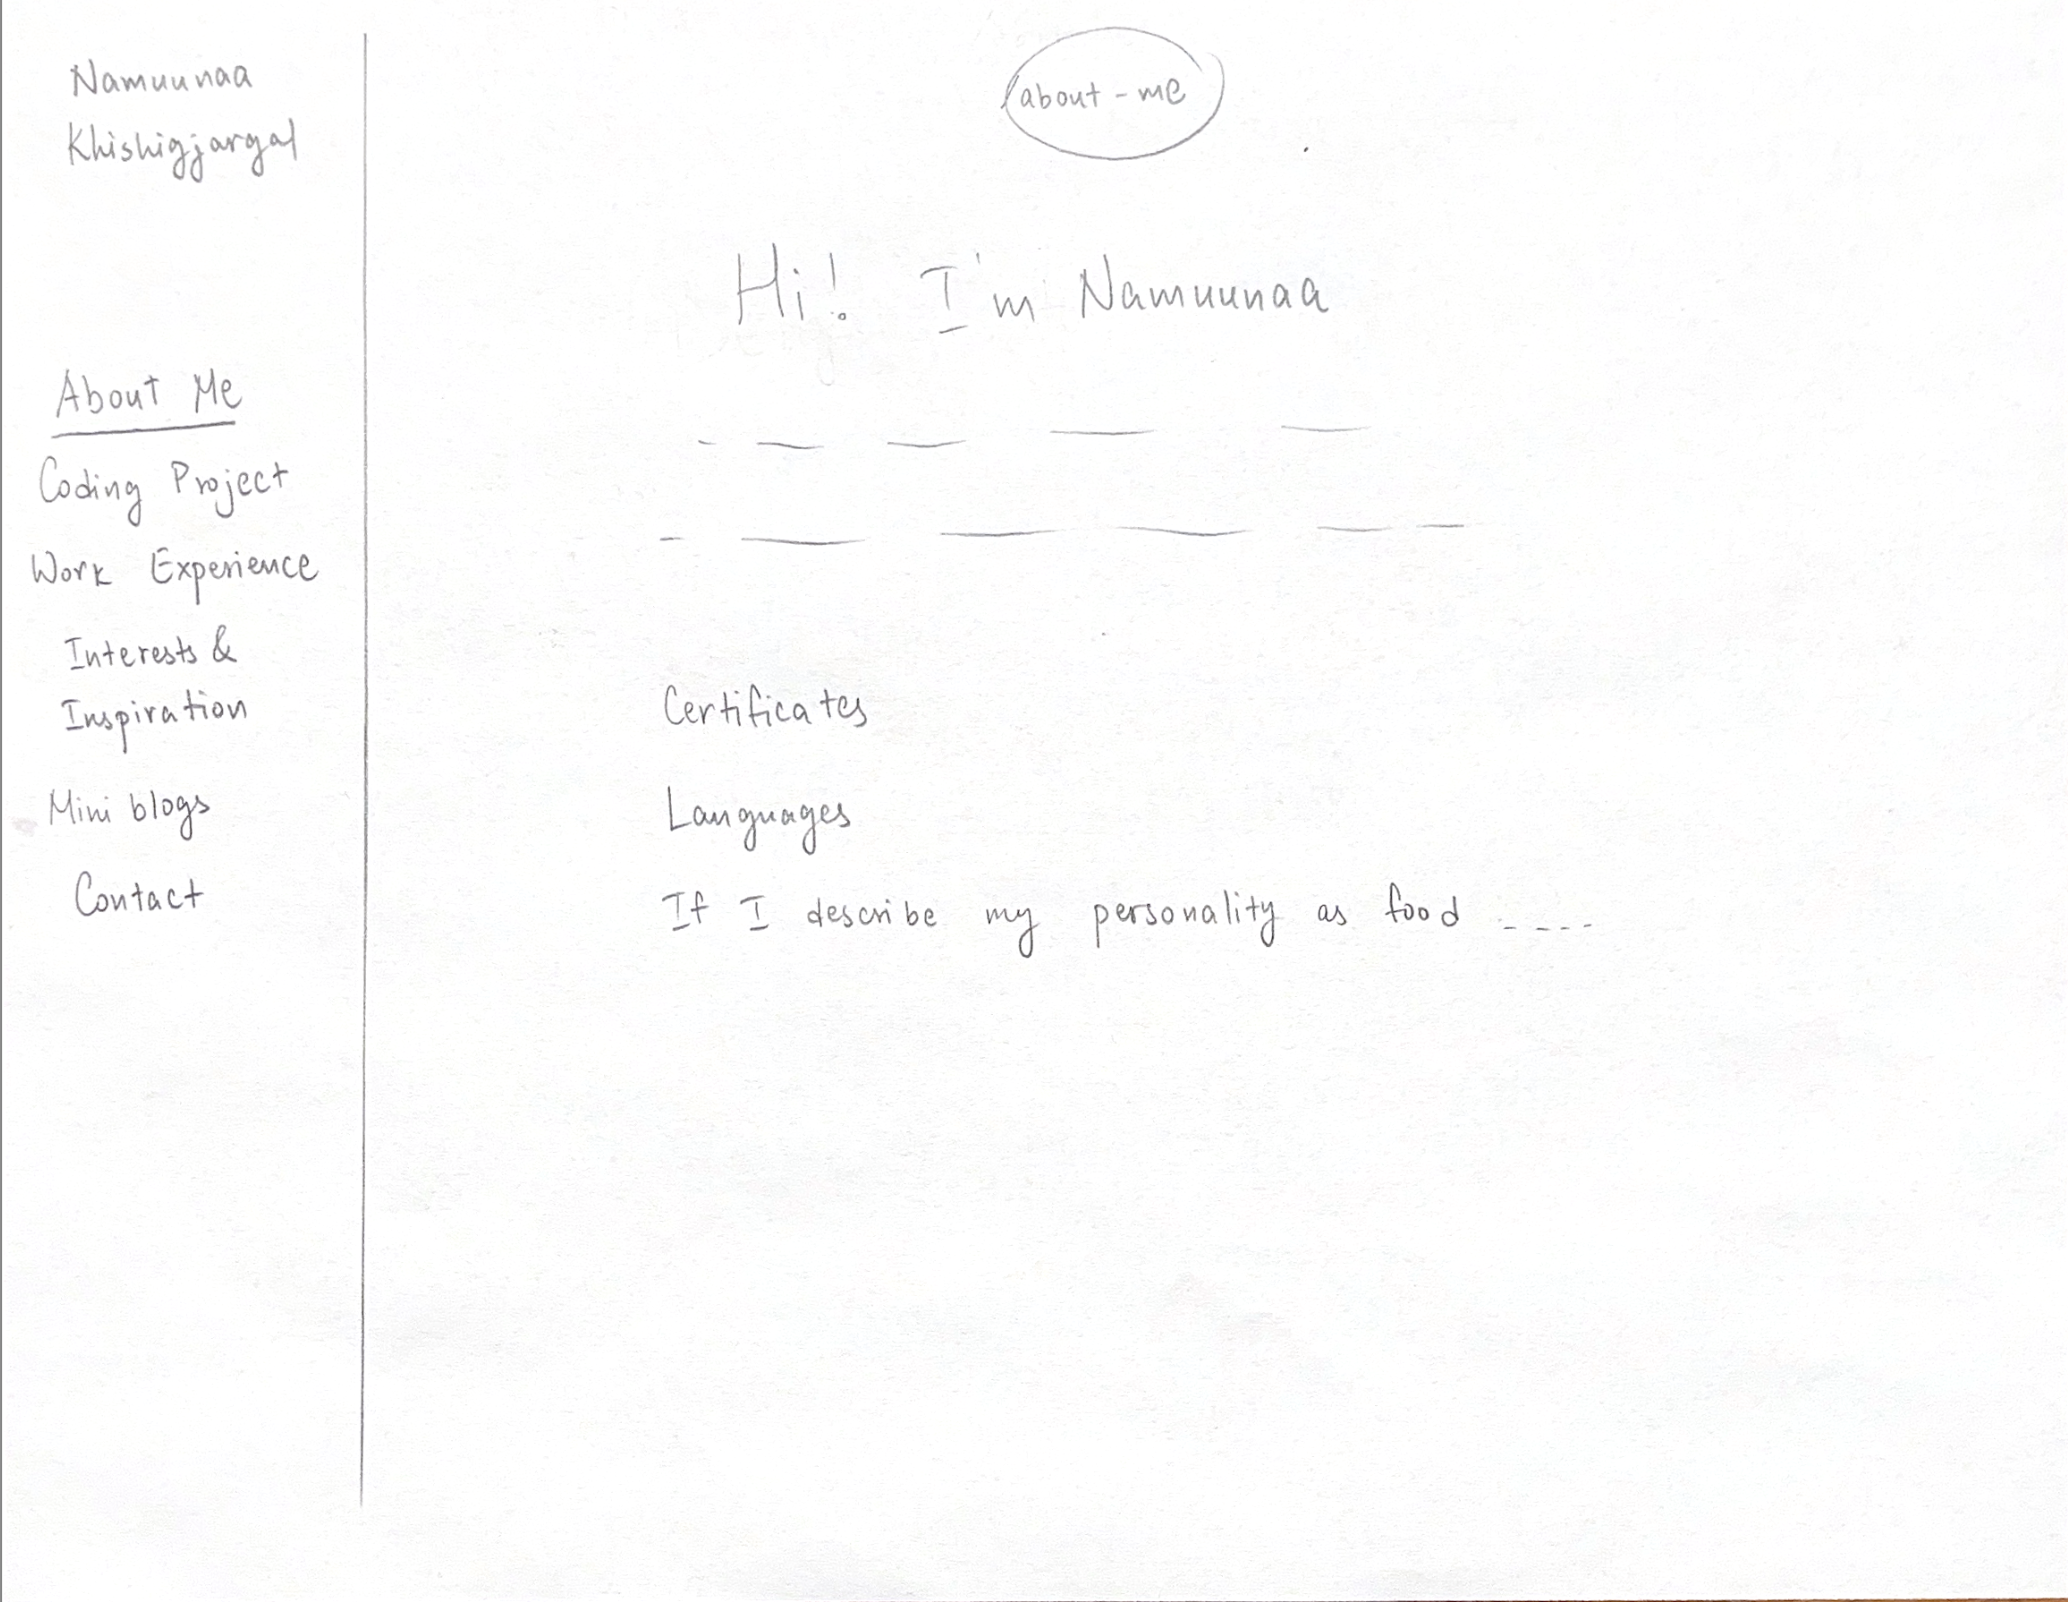 Namuunaa
Khishigjargal
About Me
Coding Project
Work Experience
Interests &
Inspiration
Mini blogs
Contact
about-me
Hi! I'm Namuunaa
Certificates
Languages
If I describe my personality as food ....